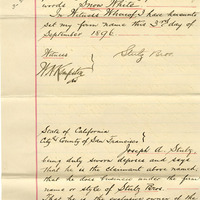 words Snow White
In Witness Whereof I have hereunto
set my firm name this 3rd day of
September 1896.
Witness
Stutz Bros.
State of California
City & County of San Francisco
Joseph A. Stutz,
being duly sworn deposes and says
that he is the claimant above named,
that he does business under the firm
name or style of Stutz Bros.
That he is the exclusive owner of the